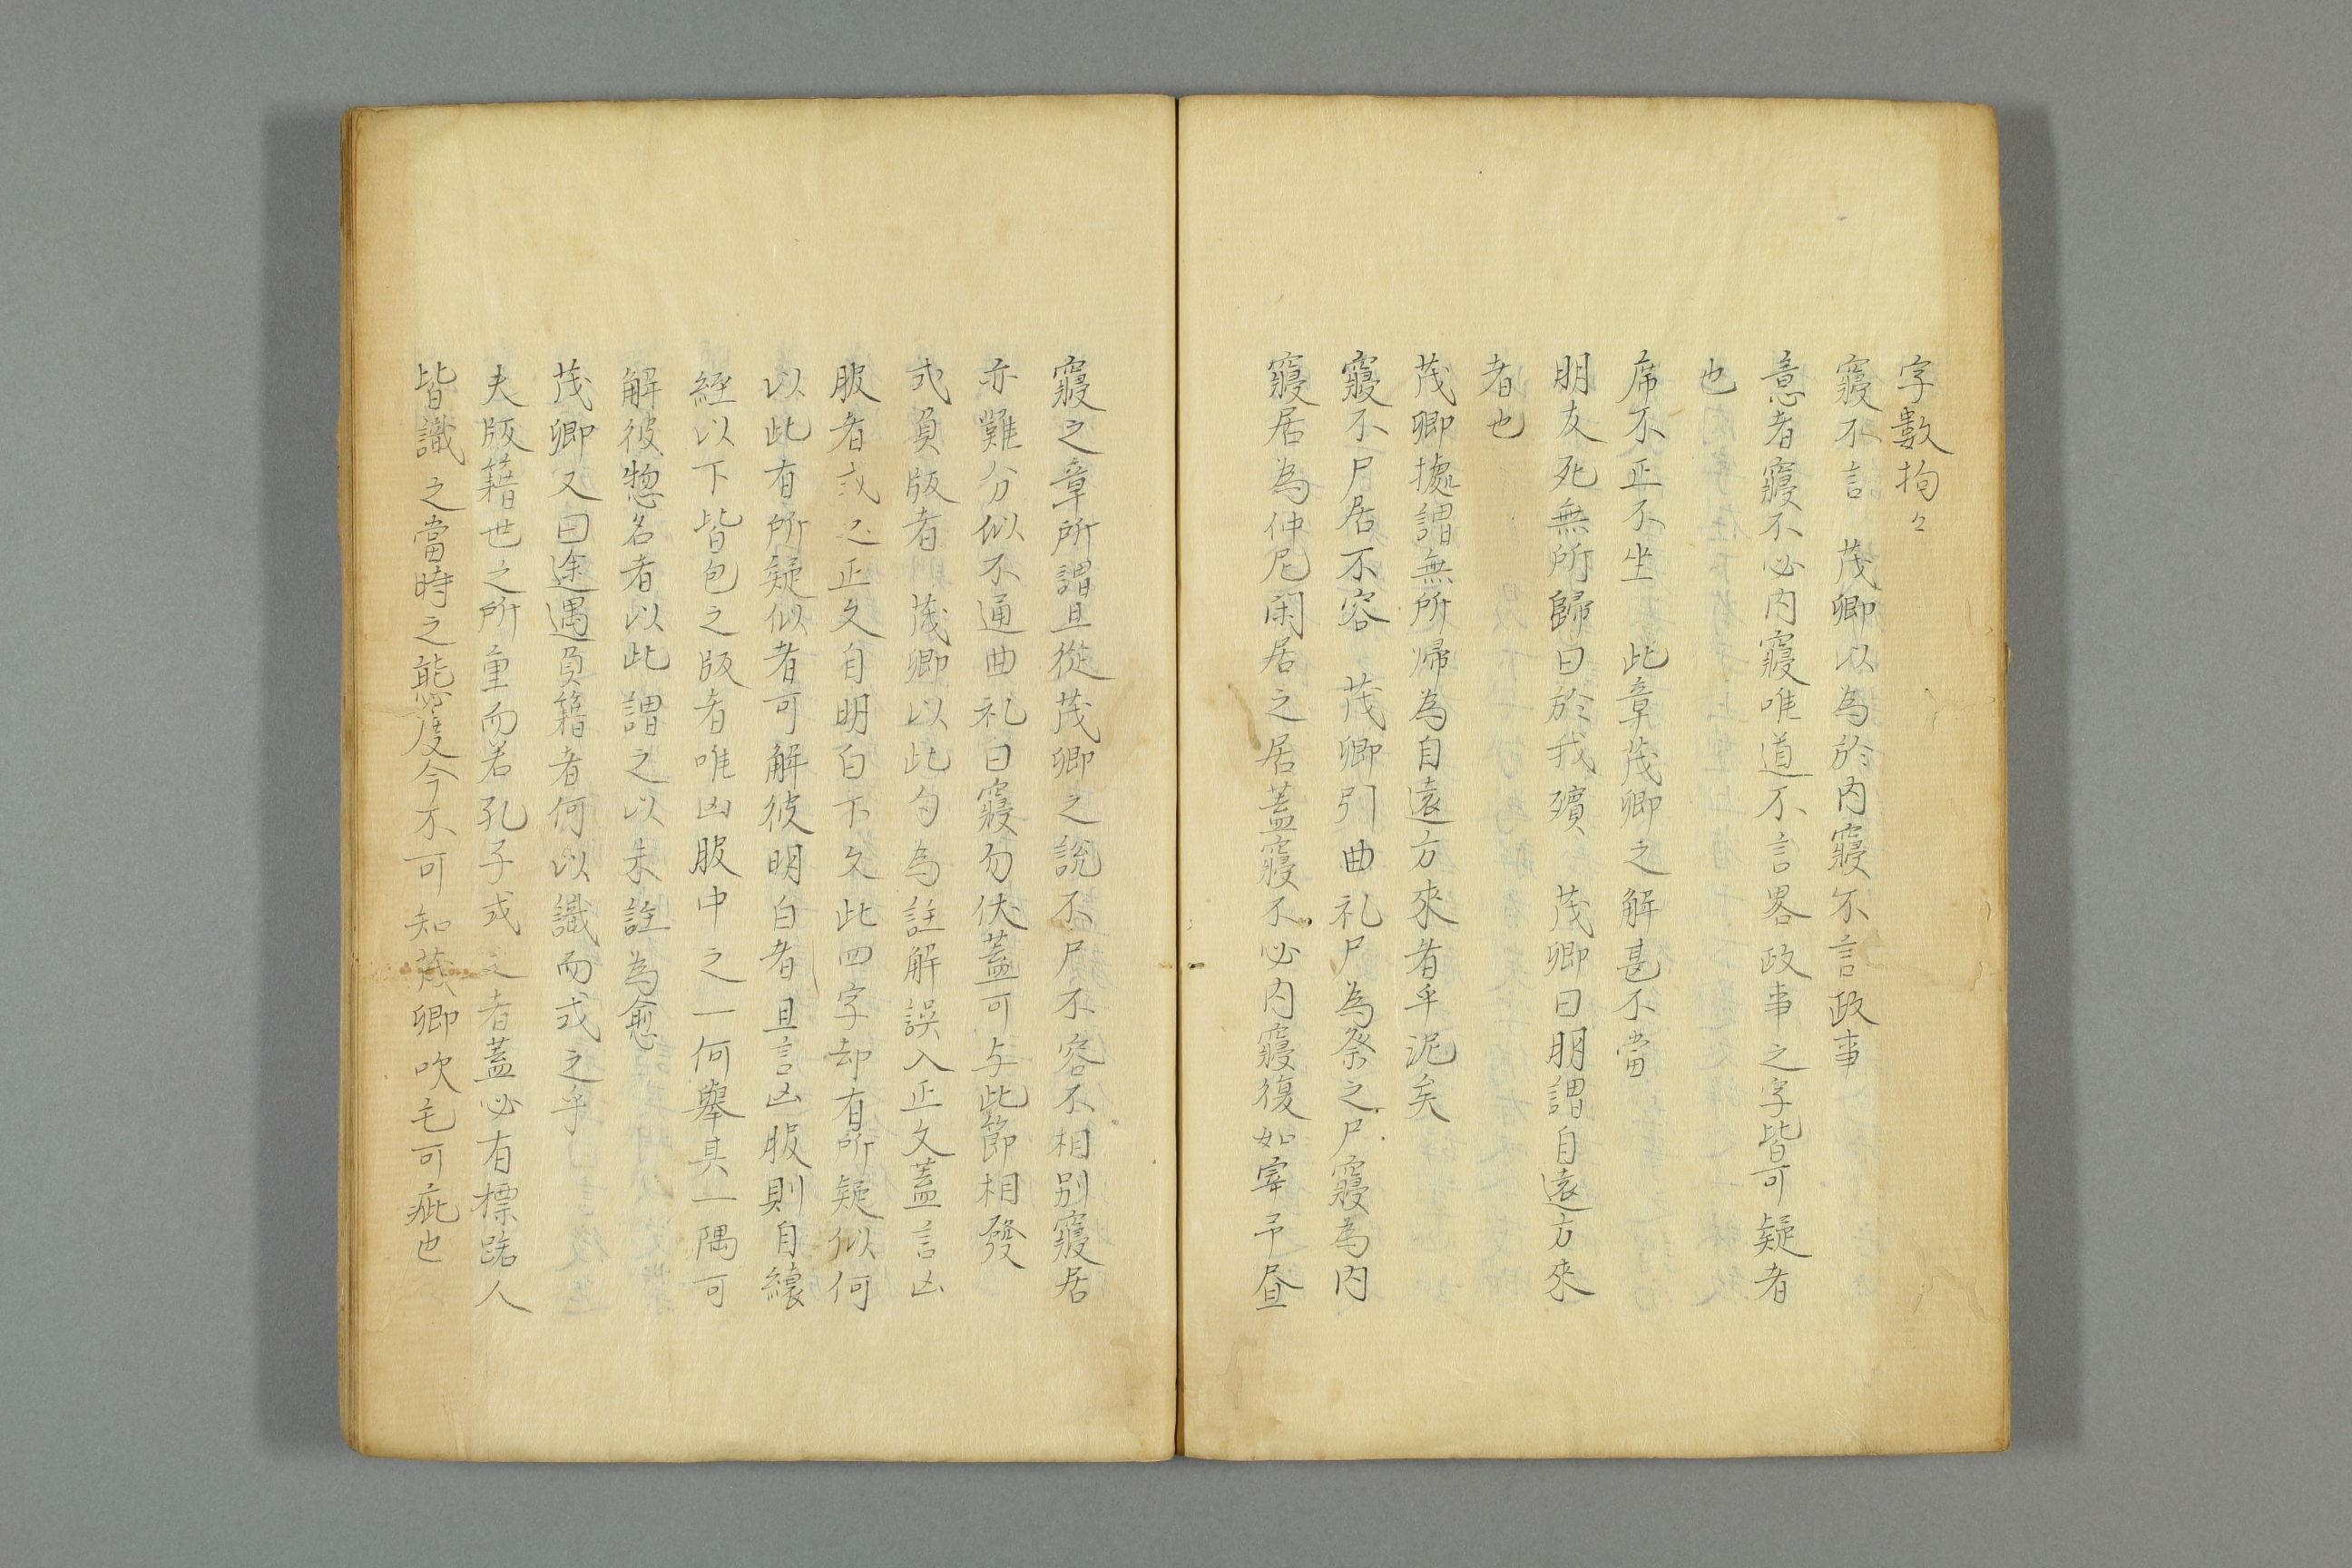 字數拘々
寢不言　茂卿以為於內寢不言政事
意者寢不必內寢唯道不言畧政事之字皆可疑者
也
席不正不坐　此章茂卿之解甚不當
朋友死無所歸曰於我殯　茂卿曰朋謂自遠方來
者也
茂卿據謂無所帰為自遠方來者乎泥矣
寢不尸居不容　茂卿引曲礼尸為祭之尸寢為內
寢居為仲尼閑居之居蓋寢不必內寢復如宰予昼
寢之章所謂且從茂卿之說不尸不容不相別寢居
亦難分似不通曲礼曰寢勿伏蓋可与此節相發
式負版者　茂卿以此句為註解誤入正文蓋言凶
服者式之正文自明白下文此四字却有所疑似何
以此有所疑似者可解彼明白者且言凶服則自縗
絰以下皆包之版者唯凶服中之一何舉其一隅可
解彼惣名者以此謂之以朱註為愈
茂卿又曰途遇負籍者何以識而式之乎
夫版籍世之所重而若孔子式之者蓋必有標踞人
皆識之當時之態度今不可知茂卿吹毛可疵也